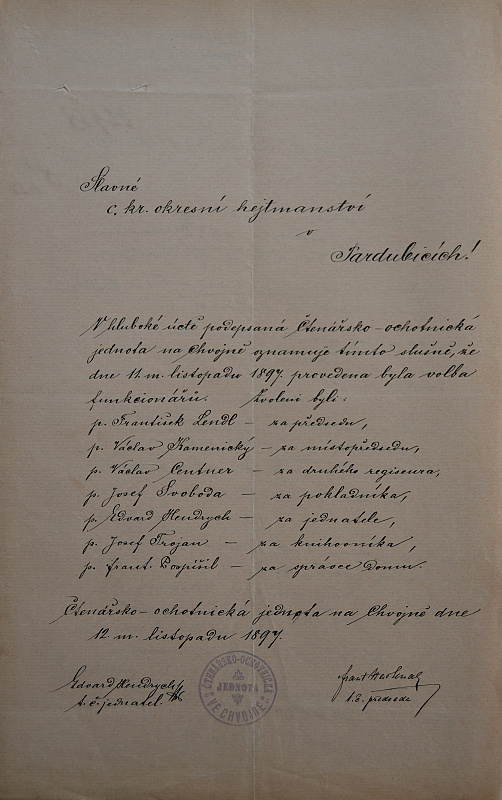 Slavné
c. kr. okresní hejtmanství
v
Pardubicích!
V hluboké úctě podepsaná Čtenářsko-ochotnická
jednota na Chvojně oznamuje tímto slušně, že
dne 11. m. listopadu 1897. provedena byla volba
funkcionářů. Zvoleni byli:
p. František Lendl – za předsedu,
p. Václav Kamenický – za místopředsedu,
p. Václav Centner – za druhého regiseura,
p. Josef Svoboda – za pokladníka,
p. Edvard Hendrych – za jednatele,
p. Josef Trojan – za knihovníka,
p. frant. Pospíšil – za správce Domu.
Čtenářsko-ochotnická jednota na Chvojně dne
12. m. listopadu 1897.
Edvard Hendrych
t. č. jednatel.
ČTENÁŘSKO-OCHOTNICKÁ
JEDNOTA
VE CHVOJNĚ
frant
t. č. předseda